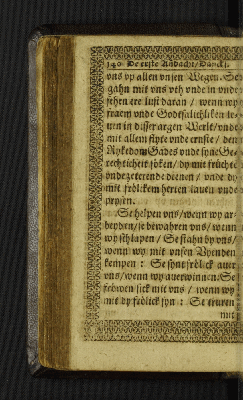 140 De erste Andacht / Danckl.
vns vp allen vnsen Wegen. Se
gahn mit vns vth vnde in vnde
sehen ere lust daran / wenn wy
fraem vnde Godtsalichliken le-
uen in disser argen Werlt / vnde
mit allem flyte vnde ernste / den
Ryckedom Gades vnde syne Ge-
rechticheit söken / dy mit früchte
vnde zeterende denen / vnde dy
mit frölikem herten lauen vnde
prysen.
Se helpen vns / wenn wy ar-
beyden / se bewahren vns / wenn
wy schlapen / Se stahn by vns /
wenn wy mit vnsen Vyenden
kempen : Se synt frölick auer
vns / wenn wy auerwinnen / Se
frewen sick mit vns / wenn wy
mit dy frölick syn : Se truren
mit